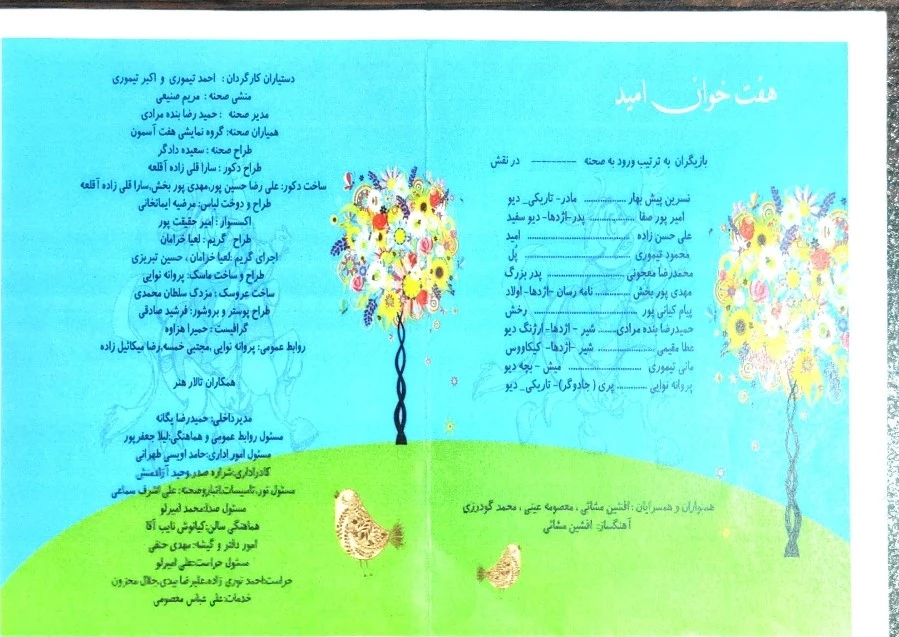 هفت خوان امید
بازیگران به ترتیب ورود به صحنه ---------- در نقش
نسرین پیش بهار ................ مادر- تاریکی_ دیو
امیر پور صفا ................ پدر-اژدها- دیو سفید
علی حسن زاده ................................ امید
محمود تیموری ................................ پل
محمدرضا معجونی ........................ پدر بزرگ
مهدی پور بخش ............ نامه رسان -اژدها- اولاد
پیام کیانی پور ............................ رخش
حمیدرضا بنده مرادی........ شیر - اژدها- ارژنگ دیو
عطا مقیمی .................... شیر -اژدها- کیکاووس
مانی تیموری ........................ میش - بچه دیو
پروانه نوایی .......... پری ( جادوگر)- تاریکی_ دیو
همنوازان و همسرایان : افشین مشائی ، معصومه عینی ، محمد گودرزی
آهنگساز: افشین مشائی
دستیاران کارگردان : احمد تیموری و اکبر تیموری
منشی صحنه : مریم صنیعی
مدیر صحنه : حمید رضا بنده مرادی
همیاران صحنه: گروه نمایشی هفت آسمون
طراح صحنه : سعیده دادگر
طراح دکور : سارا قلی زاده آقلعه
ساخت دکور: علی رضا حسین پور،مهدی پور بخش،سارا قلی زاده آقلعه
طراح و دوخت لباس: مرضیه ایمانخانی
اکسسوار : امیر حقیقت پور
طراح گریم : لعیا خرامان
اجرای گریم :لعیا خرامان ، حسین تبریزی
طراح و ساخت ماسک: پروانه نوایی
ساخت عروسک : مزدک سلطان محمدی
طراح پوستر و بروشور: فرشید صادقی
گرافیست : حمیرا هزاوه
روابط عمومی: پروانه نوایی،مجتبی خمسه،رضا میکائیل زاده
همکاران تالار هنر
مدیرداخلی: حمیدرضا یگانه
مسئول روابط عمومی و هماهنگی:لیلا جعفرپور
مسئول امور اداری:حامد اویسی طهرانی
کادراداری:شراره صدر،وحید آزادمنش
مسئول نور،تاسیسات،انباروصحنه: علی اشرف سماعی
مسئول صدا:محمد امیرلو
هماهنگی سالن:کیانوش نایب آقا
امور دفتر و گیشه: مهدی حنفی
مسئول حراست:علی امیرلو
حراست:احمد نوری زاده،علیرضا بیدی،جلال محزون
خدمات:علی عباس معصومی